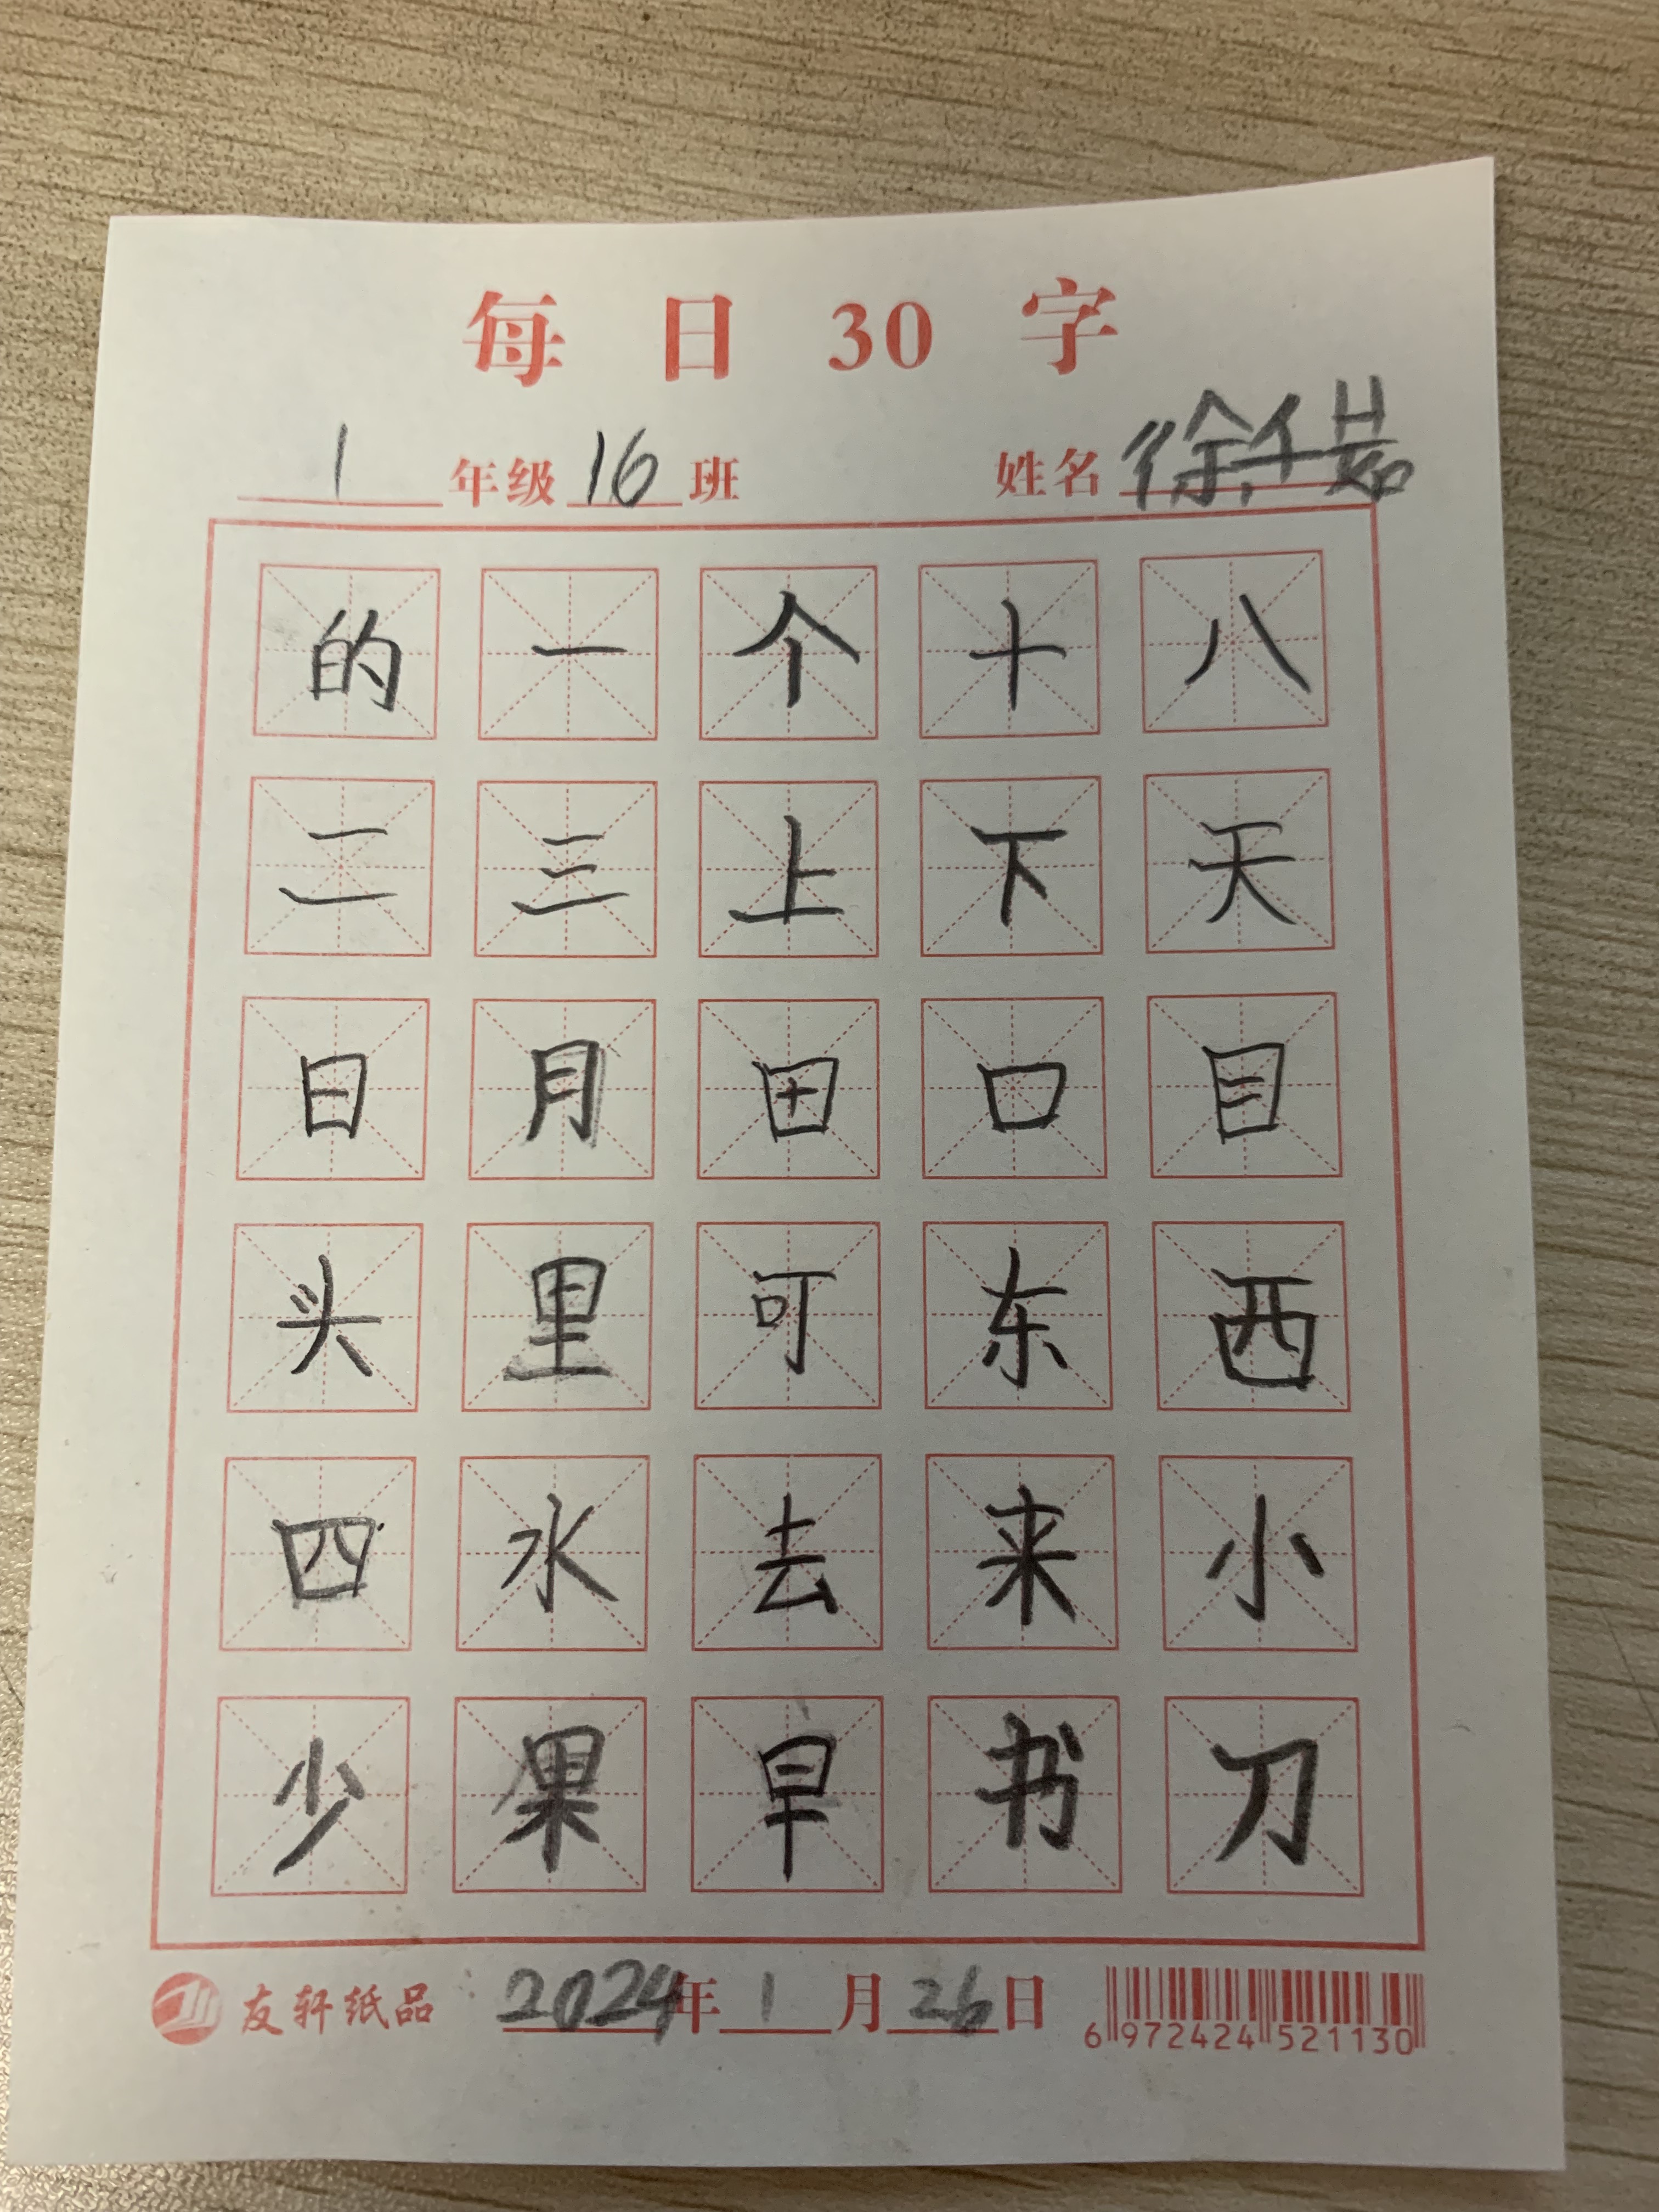 每日30字
1年级16班 姓名徐千茹
的一个十八
二三上下天
日月田口目
头里可东西
四水去来小
少果早书刀
友轩纸品 2024年1月26日 6972424521130